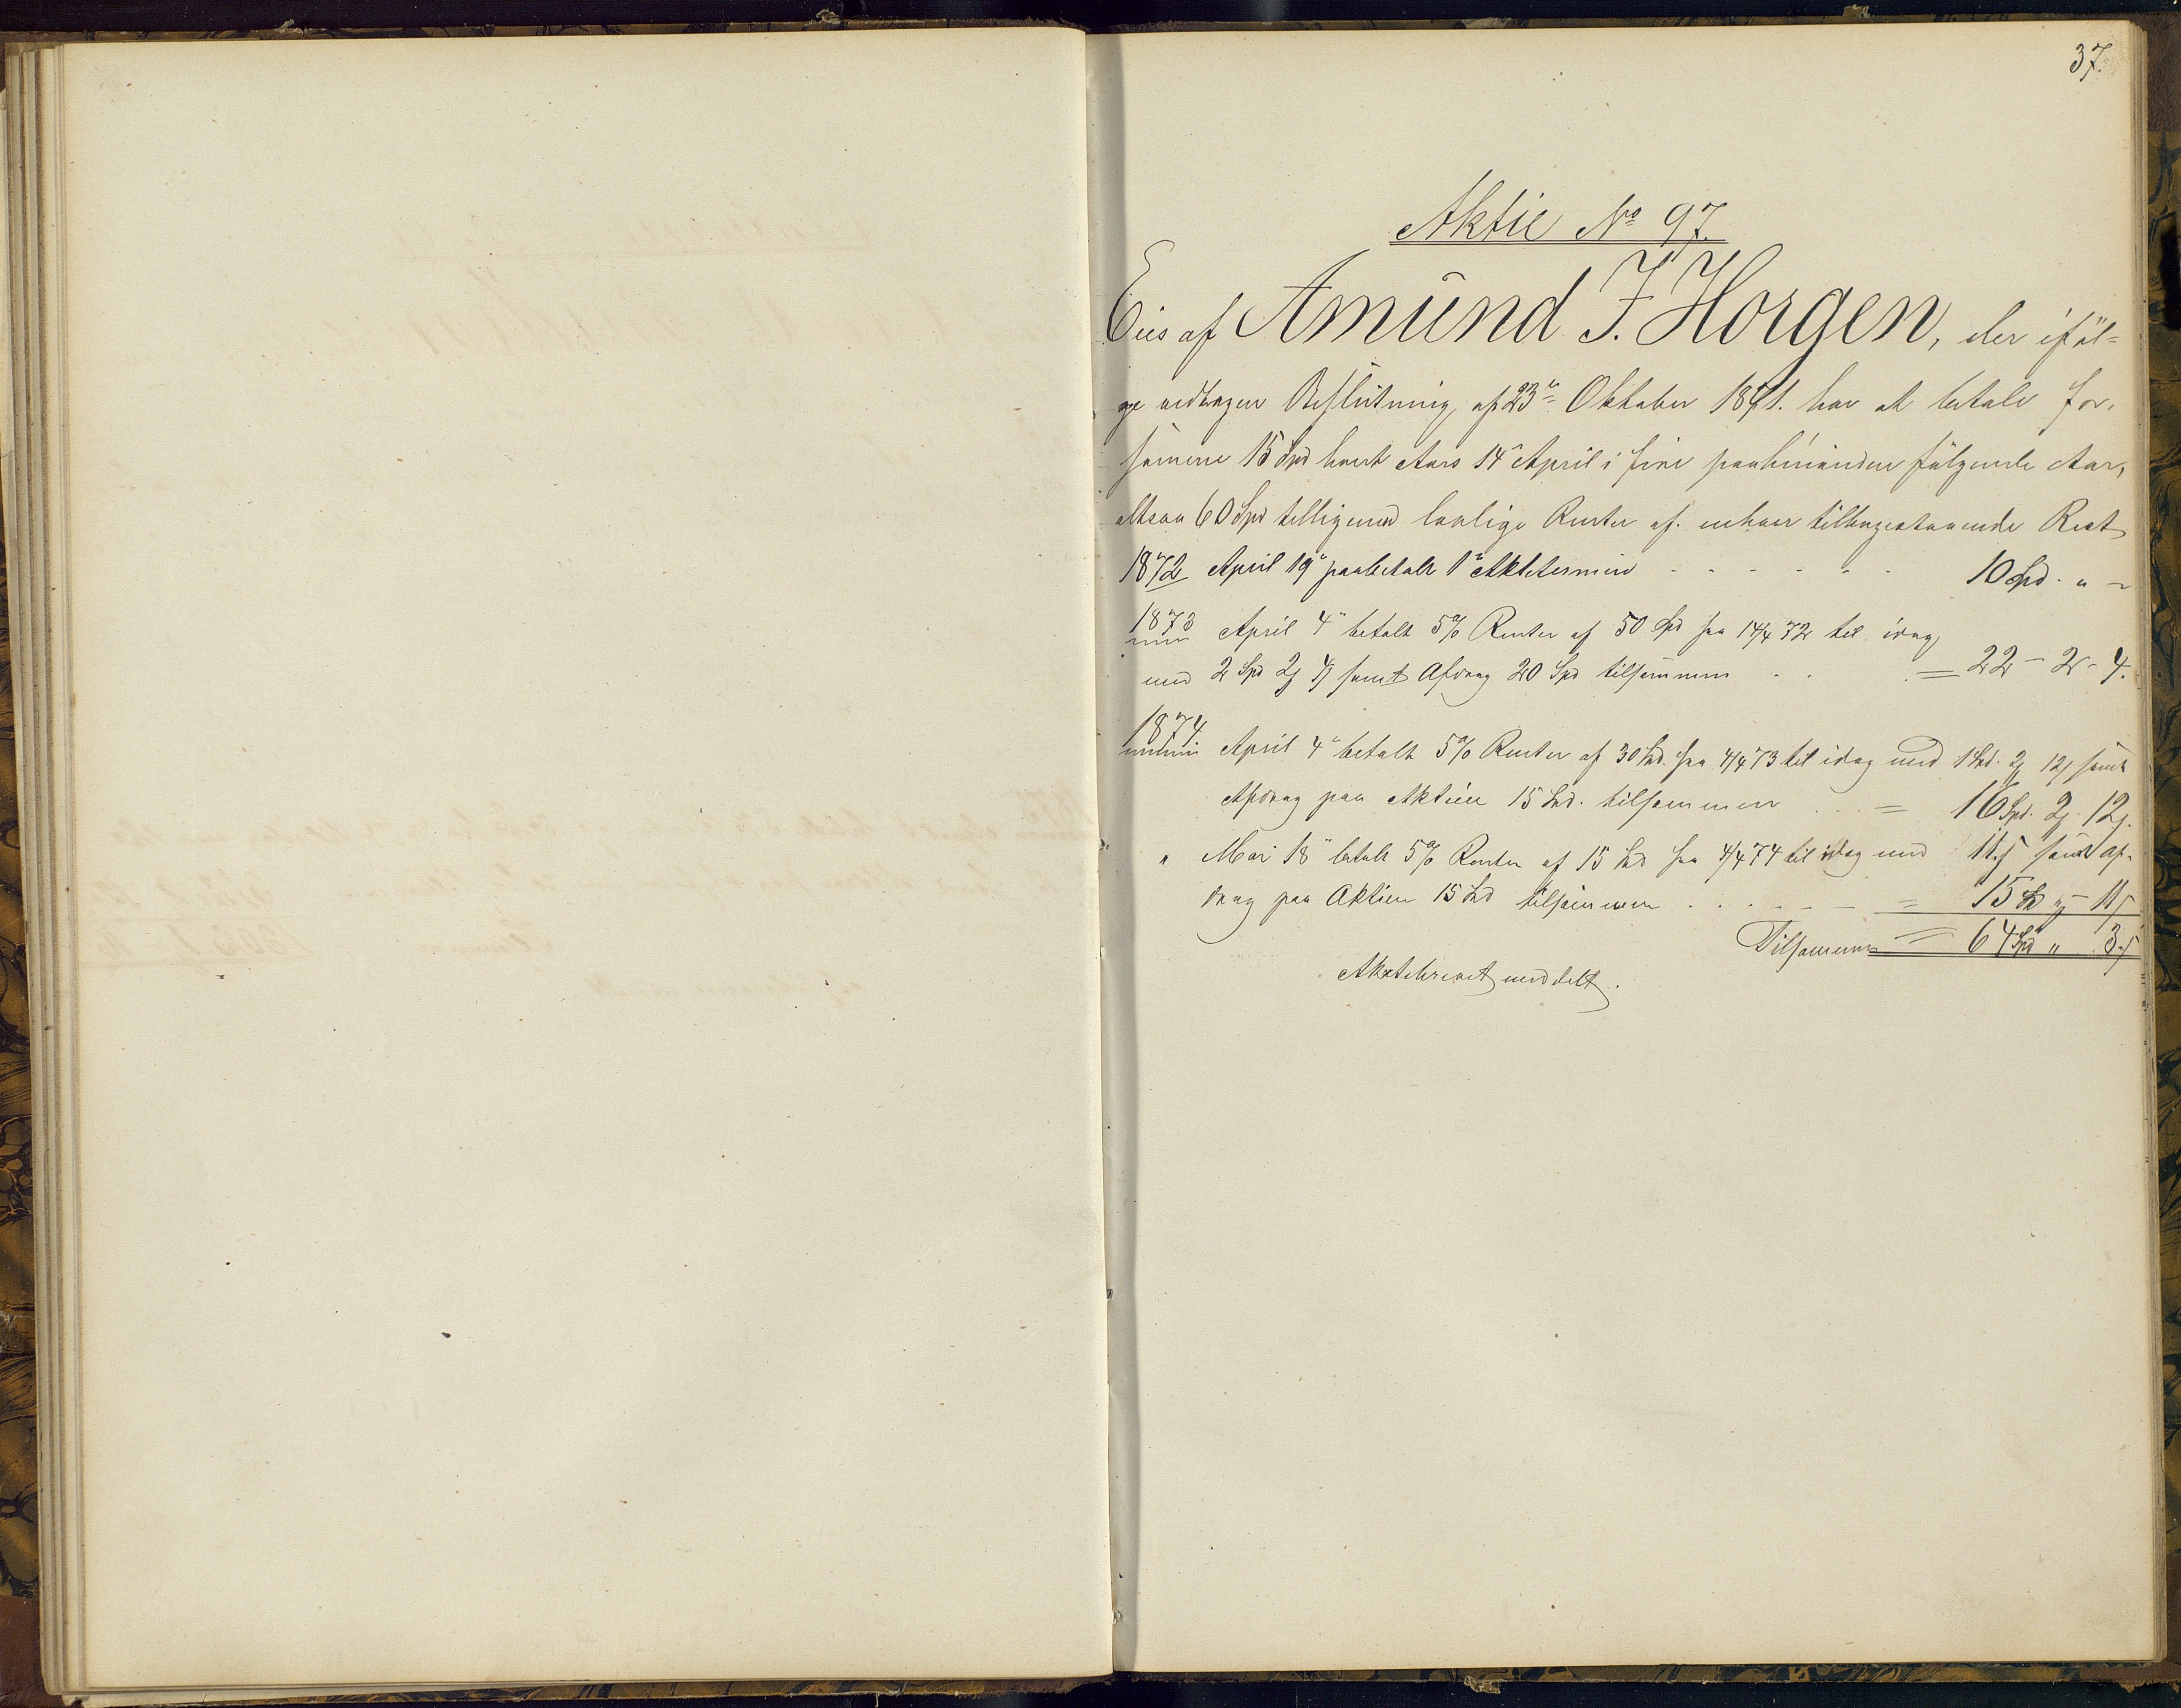 37.
Aktie No 97.
Eies af Amund J. Horgen, der iføl-
ge vedtagen Beslutning af 23de Oktober 1871. har at betale for
samme 15 Spd hvert Aars 14 April i fire paahinanden følgende Aar,
altsaa 60 Spd tilligemed lovlige Renter af enhver tilbagestaaende Rest
1872 April 19" paabetalt 1ste Aktietermin - - - - - - 10 Spd. " -
1873 April 4" betalt 5% Renter af 50 Spd fra 14/4 72 til idag
med 2 Spd 2 4 samt Afdrag 20 Spd tilsammen . . = 22 - 2 - 4.
1874 April 4" betalt 5% Renter af 30 Spd. fra 4/4 73 til idag med 1 Spd. 2 12 samt
Afdrag paa Aktien 15 Spd. tilsammen . . . = 16 Spd. 2 12
" Mai 18" betalt 5% Renter af 15 Spd fra 4/4 74 til idag med 11 samt af-
drag paa Aktien 15 Spd tilsammen . . . . - - = 15 Spd " - 11
Tilsammen = 64 Spd " 3
Aktiebrevet meddelt.